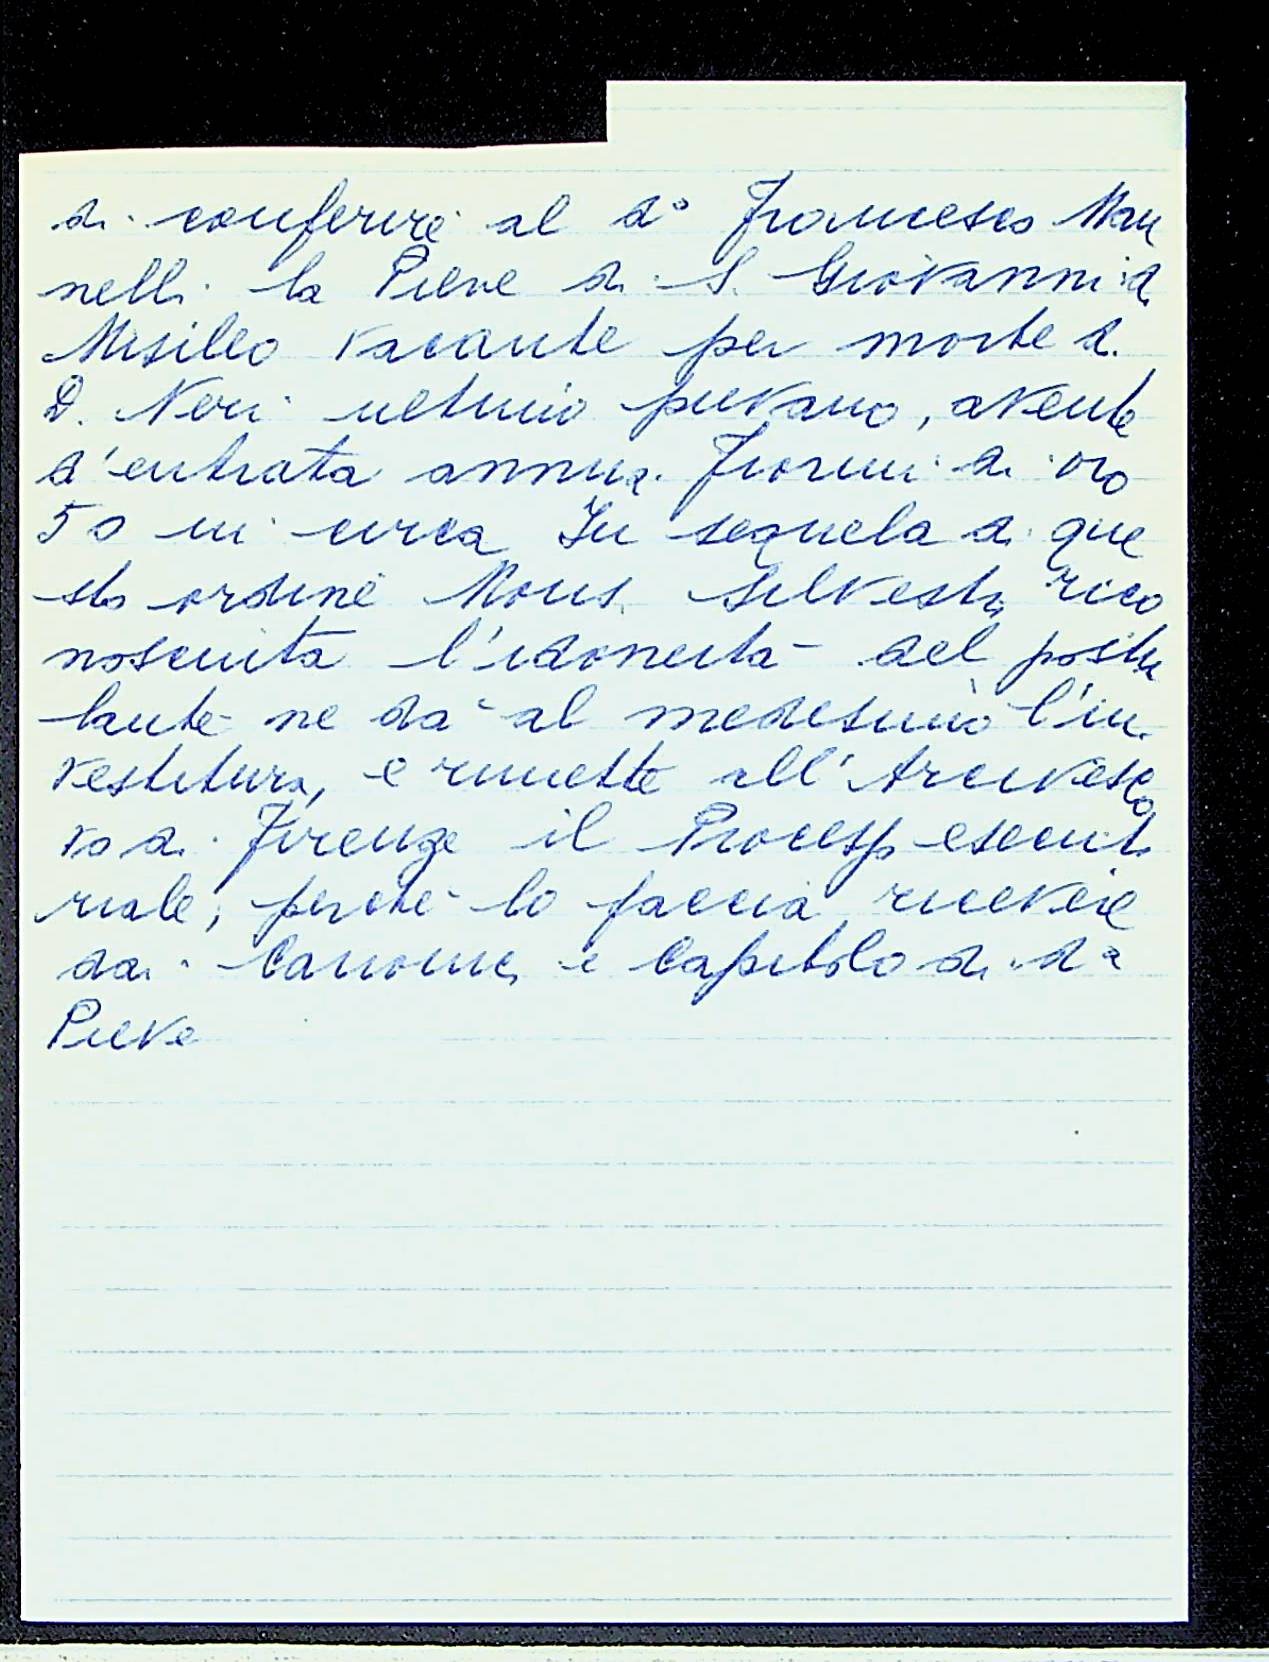 di conferire al d° Francesco Man
nelli la Pieve di S. Giovanni di
Misileo vacante per morte di
D. Neri ultimo pievano, avente
d'entrata annua Fiorini di oro
50 in circa In sequela di que
sto ordine Mons. Silvestri rico
nosciuta l'idoneità del postu
lante ne dà al medesimo l'in
vestitura, e rimette all'Arcivesco
vo di Firenze il Processo esecuto
riale, perché lo faccia ricevere
dai Canonici e Capitolo di da
Pieve